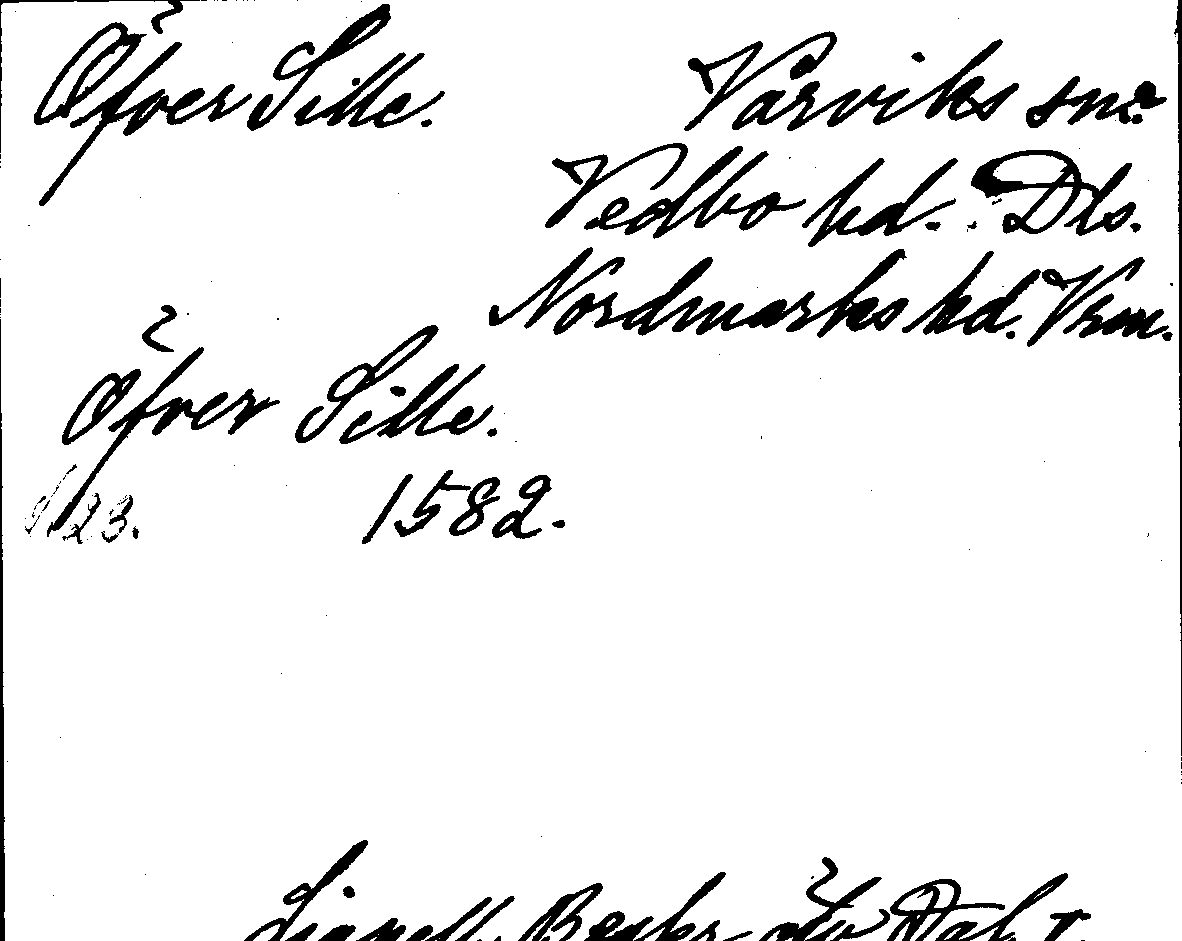 Öfver Sille. Vårviks sn?
Vedbo hd. Dls.
Nordmarks hd. Vrm.
Öfver Sille.
23. 1582.
Lignell, Beskr. öfv. Dal I.